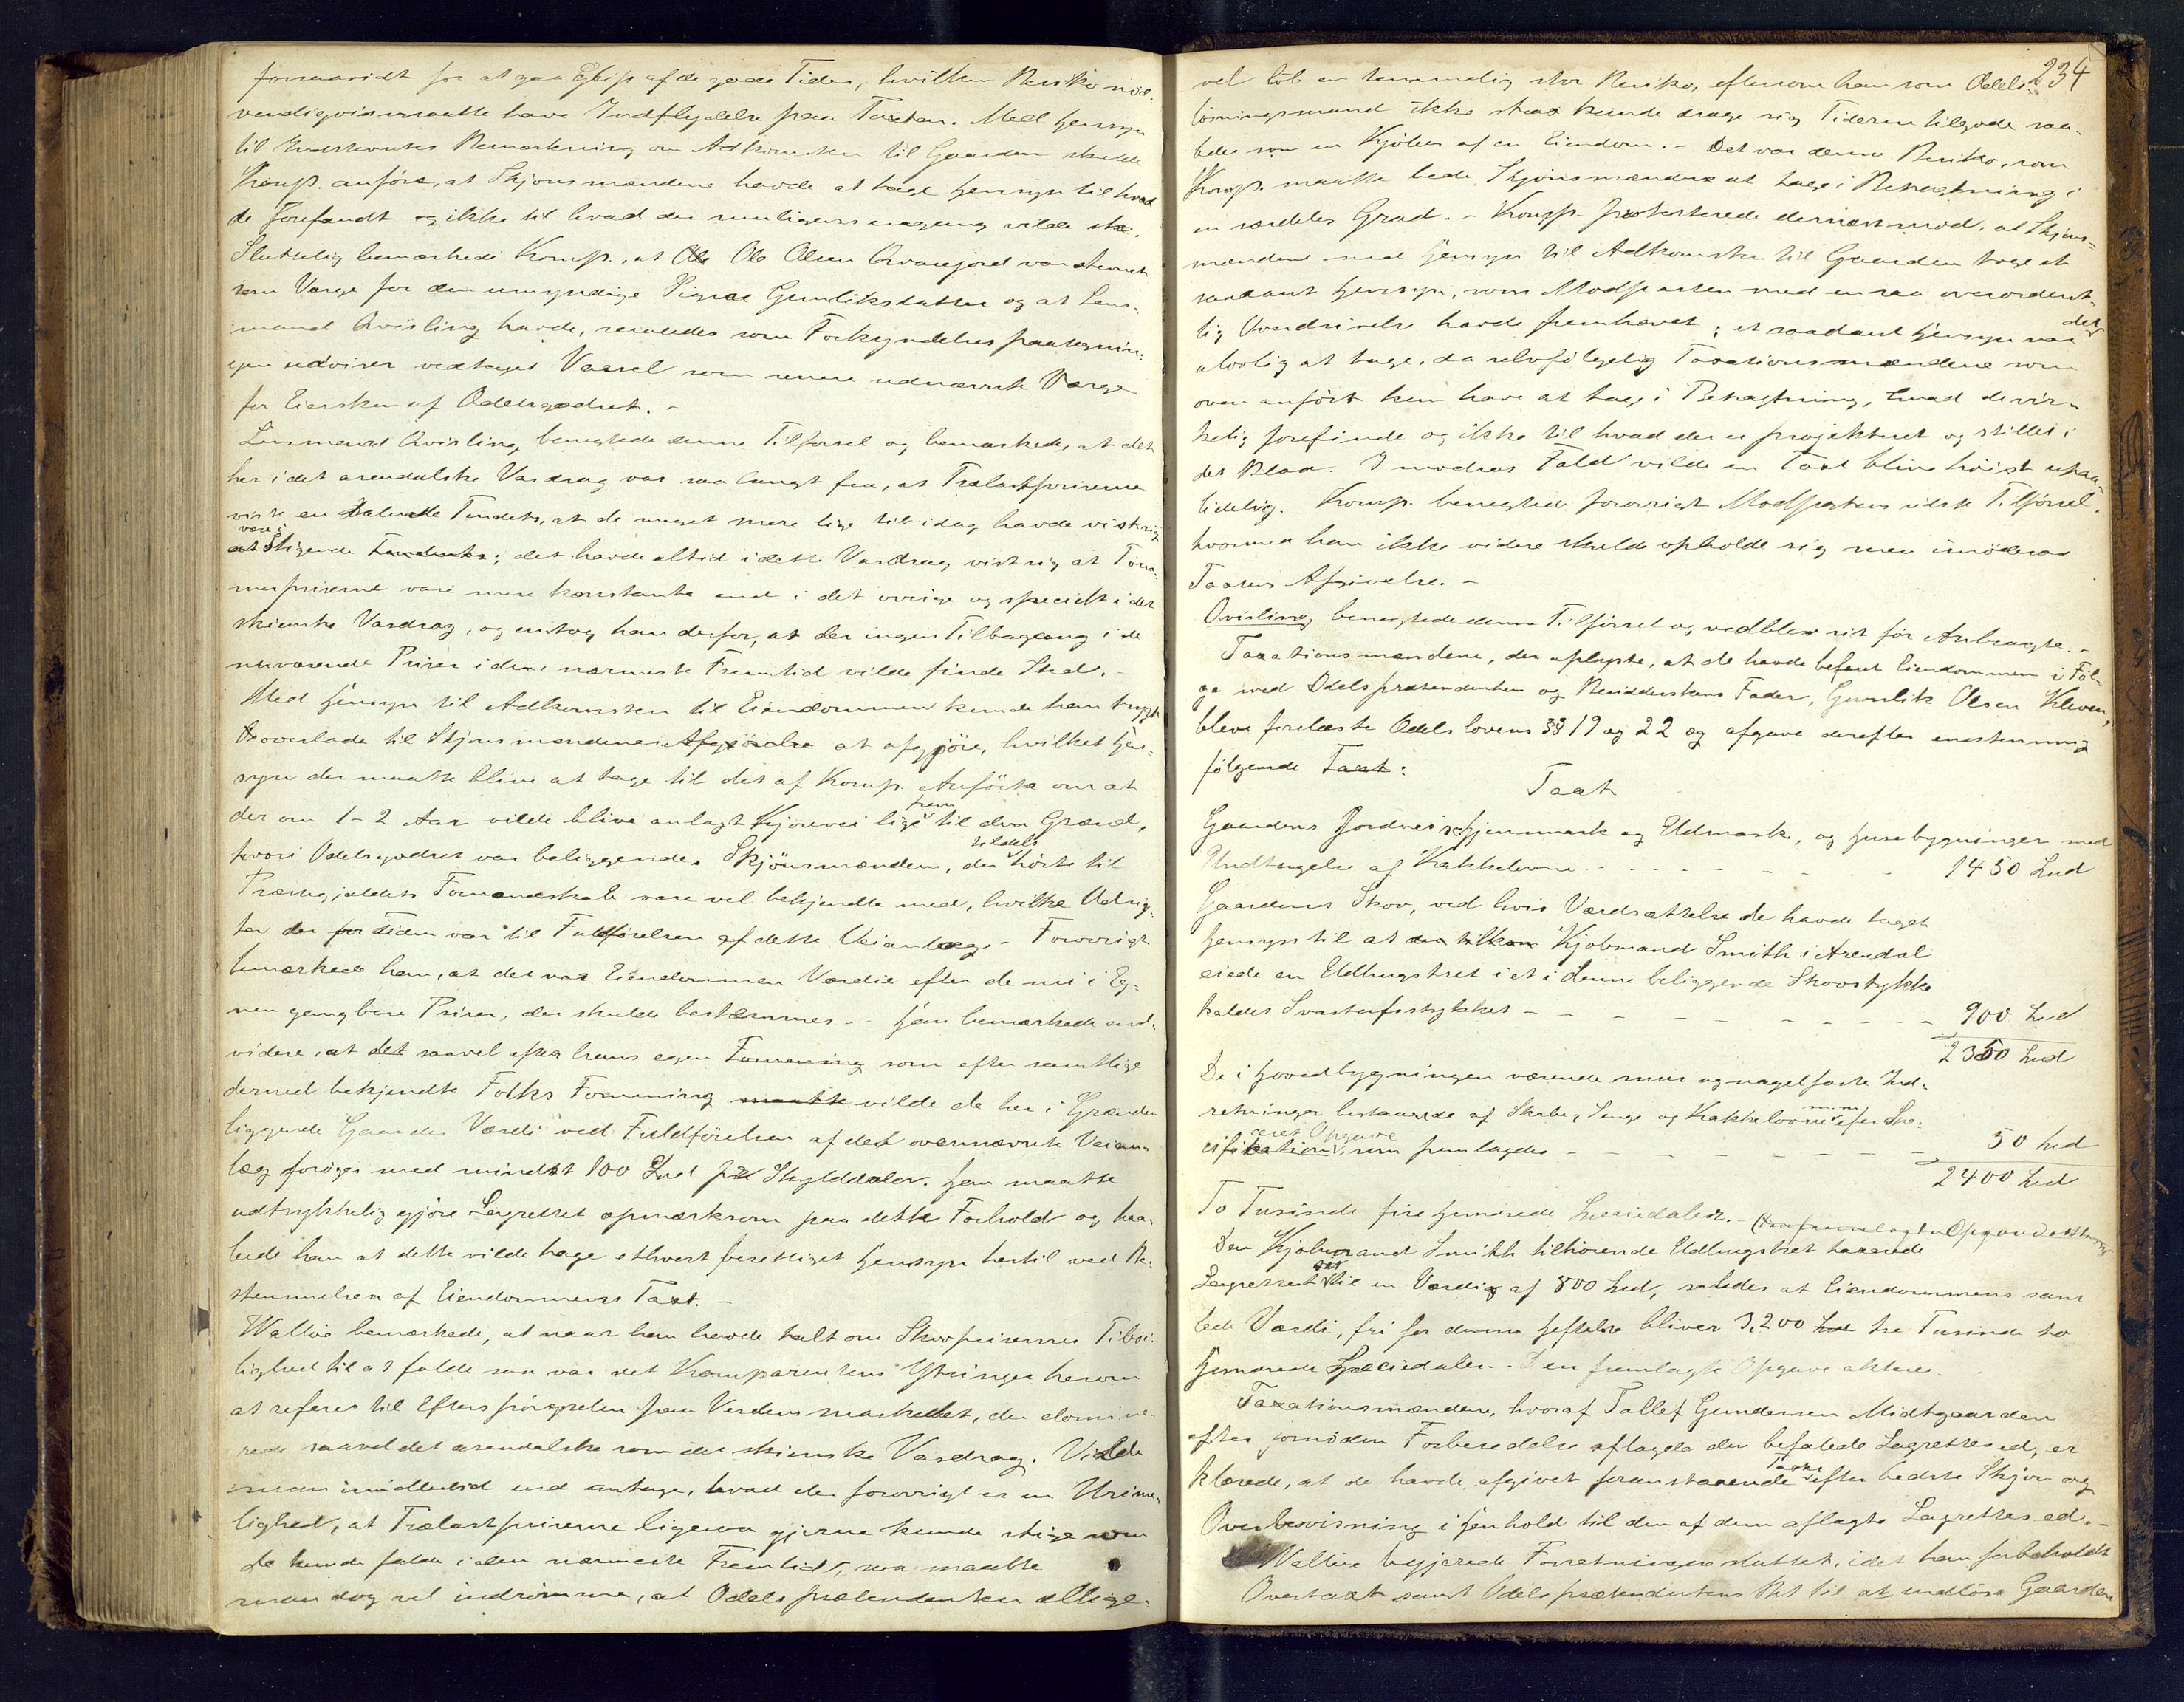 forsaavidt for at gaa Glip af de gode Tider, hvilken Risiko nöd-
vendigvis maatte have Indflydelse paa Taxten. Med Hensyn
til Bemærkning om Adkomsten til Gaarden skulde
Komp. anføre, at Skjønsmændene havde at tage Hensyn til hvad
de forefandt og ikke til hvad der muligens engang vilde ske.
Sluttelig bemærkede Komp., at Ole Olsen Kvasejord var stevnet
som Værge for den umyndige Signe Gunliksdatter og at Lens-
mand Qvisling havde, saaledes som Forkyndelsespaategnin-
gen udviser vedtaget Varsel som senere udnævnt Værge
for Eiersken af Odelsgodset. –
Lensmand Qvisling benegtede denne Tilførsel og bemærkede, at det
her i det arendalske Vasdrag var saa langt fra, at Trælastpriserne
viste en dalende Tendets, at de meget mere lige til idag havde vist sig
at være i Stigende Tendents; det havde altid i dette Vasdrag vist sig at Töm-
merpriserne vare mere konstante end i det övrige og specielt i det
skienske Vasdrag, og antog han derfor, at der ingen Tilbagegang i de
nuværende Priser i den nærmeste Fremtid vilde finde Sted. –
Med Hensyn til Adkomsten til Eiendommen kunde han trygt
overlade til Skjønsmændenes Afgjörelse at afgjöre, hvilket Hen-
syn der maatte blive at tage til det af Komp. Anförte om at
der om 1–2 Aar vilde blive anlagt Kjörevei lige frem til den Grænd,
hvori Odelsgodset var beliggende. Skjönsmændene, der tildels hörte til
Præstegjeldets Formandskab vare vel bekjendte med, hvilke Udsig-
ter der for Tiden var til Fuldförelsen af dette Veianlæg. – Forövrigt
bemærkede han, at det var Eiendommens Værdie efter de nu i Eg-
nen gangbare Priser, der skulde bestemmes. – Han bemærkede end-
videre, at det saavel efter hans egen Formening som efter samtlige
dermed bekjendte Folks Formening maatte vilde de her i Grænden
liggende Gaardes Værdi ved Fuldförelsen af det ovennævnte Veian-
læg foröges med mindst 100 Spd pr Skylddaler. Han maatte
udtrykkelig gjöre Lagrettet opmærksom paa dette Forhold og haa-
bede han at dette vilde tage ethvert berettiget Hensyn hertil ved Be-
stemmelsen af Eiendommens Taxt. –
Wallöe bemærkede, at naar han havde talt om Skovprisernes Tilböi-
lighed til at falde saa var det Komparentens Ytringer herom
at referere til Efterspörgselen paa Verdensmarkedet, der domine-
rede saavel det arendalske som det skienske Vasdrag. Vilde
man imidlertid end antage, hvad der forövrigt er en Urime-
lighed, at Trælastpriserne ligesaa gjerne kunde stige som
de kunde falde i den nærmeste Fremtid, saa maatte
man dog vel indrömme, at Odelsprætendenten allige-
234
vel löb en temmelig stor Risiko, eftersom han som Odels-
lösningsmand ikke strax kunde drage sig Tiderne tilgode saa-
ledes som en Kjöber af en Eiendom. – Det var denne Risiko, som
Komp. maatte bede Skjönsmændene at tage i Betragtning i
en særdeles Grad. – Komp. protesterede dernæst mod, at Skjöns-
mændene med Hensyn til Adkomsten til Gaarden tage et
saadant Hensyn, som Modparten med en saa overordent-
lig Overdrivelse havde fremhævet; et saadant Hensyn var det
ulovlig at tage, da selvfölgelig Taxationsmændene som
oven anfört kun have at tage i Betragtning, hvad de vir-
kelig forefinde og ikke til hvad der er projekteret og stillet i
det Blaa. I modsat Fald vilde en Taxt blive höist upaa-
lidelig. Komp. benegtede forövrigt Modpartens sidste Tilförsel,
hvormed han ikke videre skulde opholde sig men imödesaa
Taxtens Afgivelse. –
Qvisling benegtede denne Tilförsel og vedblev sit för Anbragte. –
Taxationsmændene, der oplyste, at de havde befaret Eiendommen i Föl-
ge med Odelsprætendenten og Besidderskens Fader, Gunlik Olsen Kleven,
bleve forelæste Odelslovens §§ 19 og 22 og afgave derefter enstemmig
følgende Taxt:
Taxt
Gaardens Jordvei Hjemmark og Udmark, og Husebygninger med
Undtagelse af Kakkelovne - - - - 1450 Spd
Gaardens Skov, ved hvis Værdsættelse de havde taget
Hensyn til at Kjöbmand Smith i Arendal
eiede en Udhugstret i et i denne beliggende Skovstykke
kaldet - - - - 900 Spd
2350 Spd
De i Hovedbygningen værende mur og nagelfaste Ind-
retninger bestaaende af Skabe, Senge og Kakkelovne m.m. efter Spe-
cificeret Opgave, som fremlagdes - - - - 50 Spd
2400 Spd
To Tusinde fire Hundrede Speciedaler. –
Den Kjöbmand Smith tilhörende Udhugstret taxerede
Lagrettet til en Værdi af 800 Spd, saledes at Eiendommens sam-
lede Værdi, fri for denne Heftelse bliver 3,200 tre Tusinde to
Hundrede Speciedaler. – Den fremlagte Opgave aktere.
Taxationsmændene, hvoraf Tallef Gundersen Midtgaarden
efter fornöden Forberedelse aflagde den befalede Lagrettesed, er-
klærede, at de havde afgivet foranstaaende Taxt efter bedste Skjön og
Overbevisning i Henhold til den af dem aflagte Lagrettesed. –
Wallöe begjærede Forretningen sluttet, idet han forbeholdt
Overtaxt samt Odelsprætendentens Ret til at indlöse Gaarden